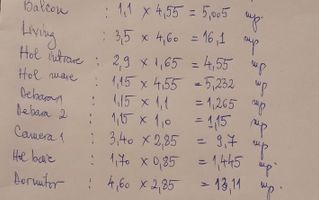 Balcon : 1,1 × 4,55 = 5,005 mp.
Living : 3,5 × 4,60 = 16,1 mp
Hol intrare : 2,9 × 1,65 = 4,55 mp.
Hol mare : 1,15 × 4,55 = 5,232 mp.
Debara 1 : 1,15 × 1,1 = 1,265 mp.
Debara 2 : 1,15 × 1,0 = 1,15 mp.
Camera 1 : 3,40 × 2,85 = 9,7 mp.
Hol baie : 1,70 × 0,85 = 1,445 mp.
Dormitor : 4,60 × 2,85 = 13,11 mp.